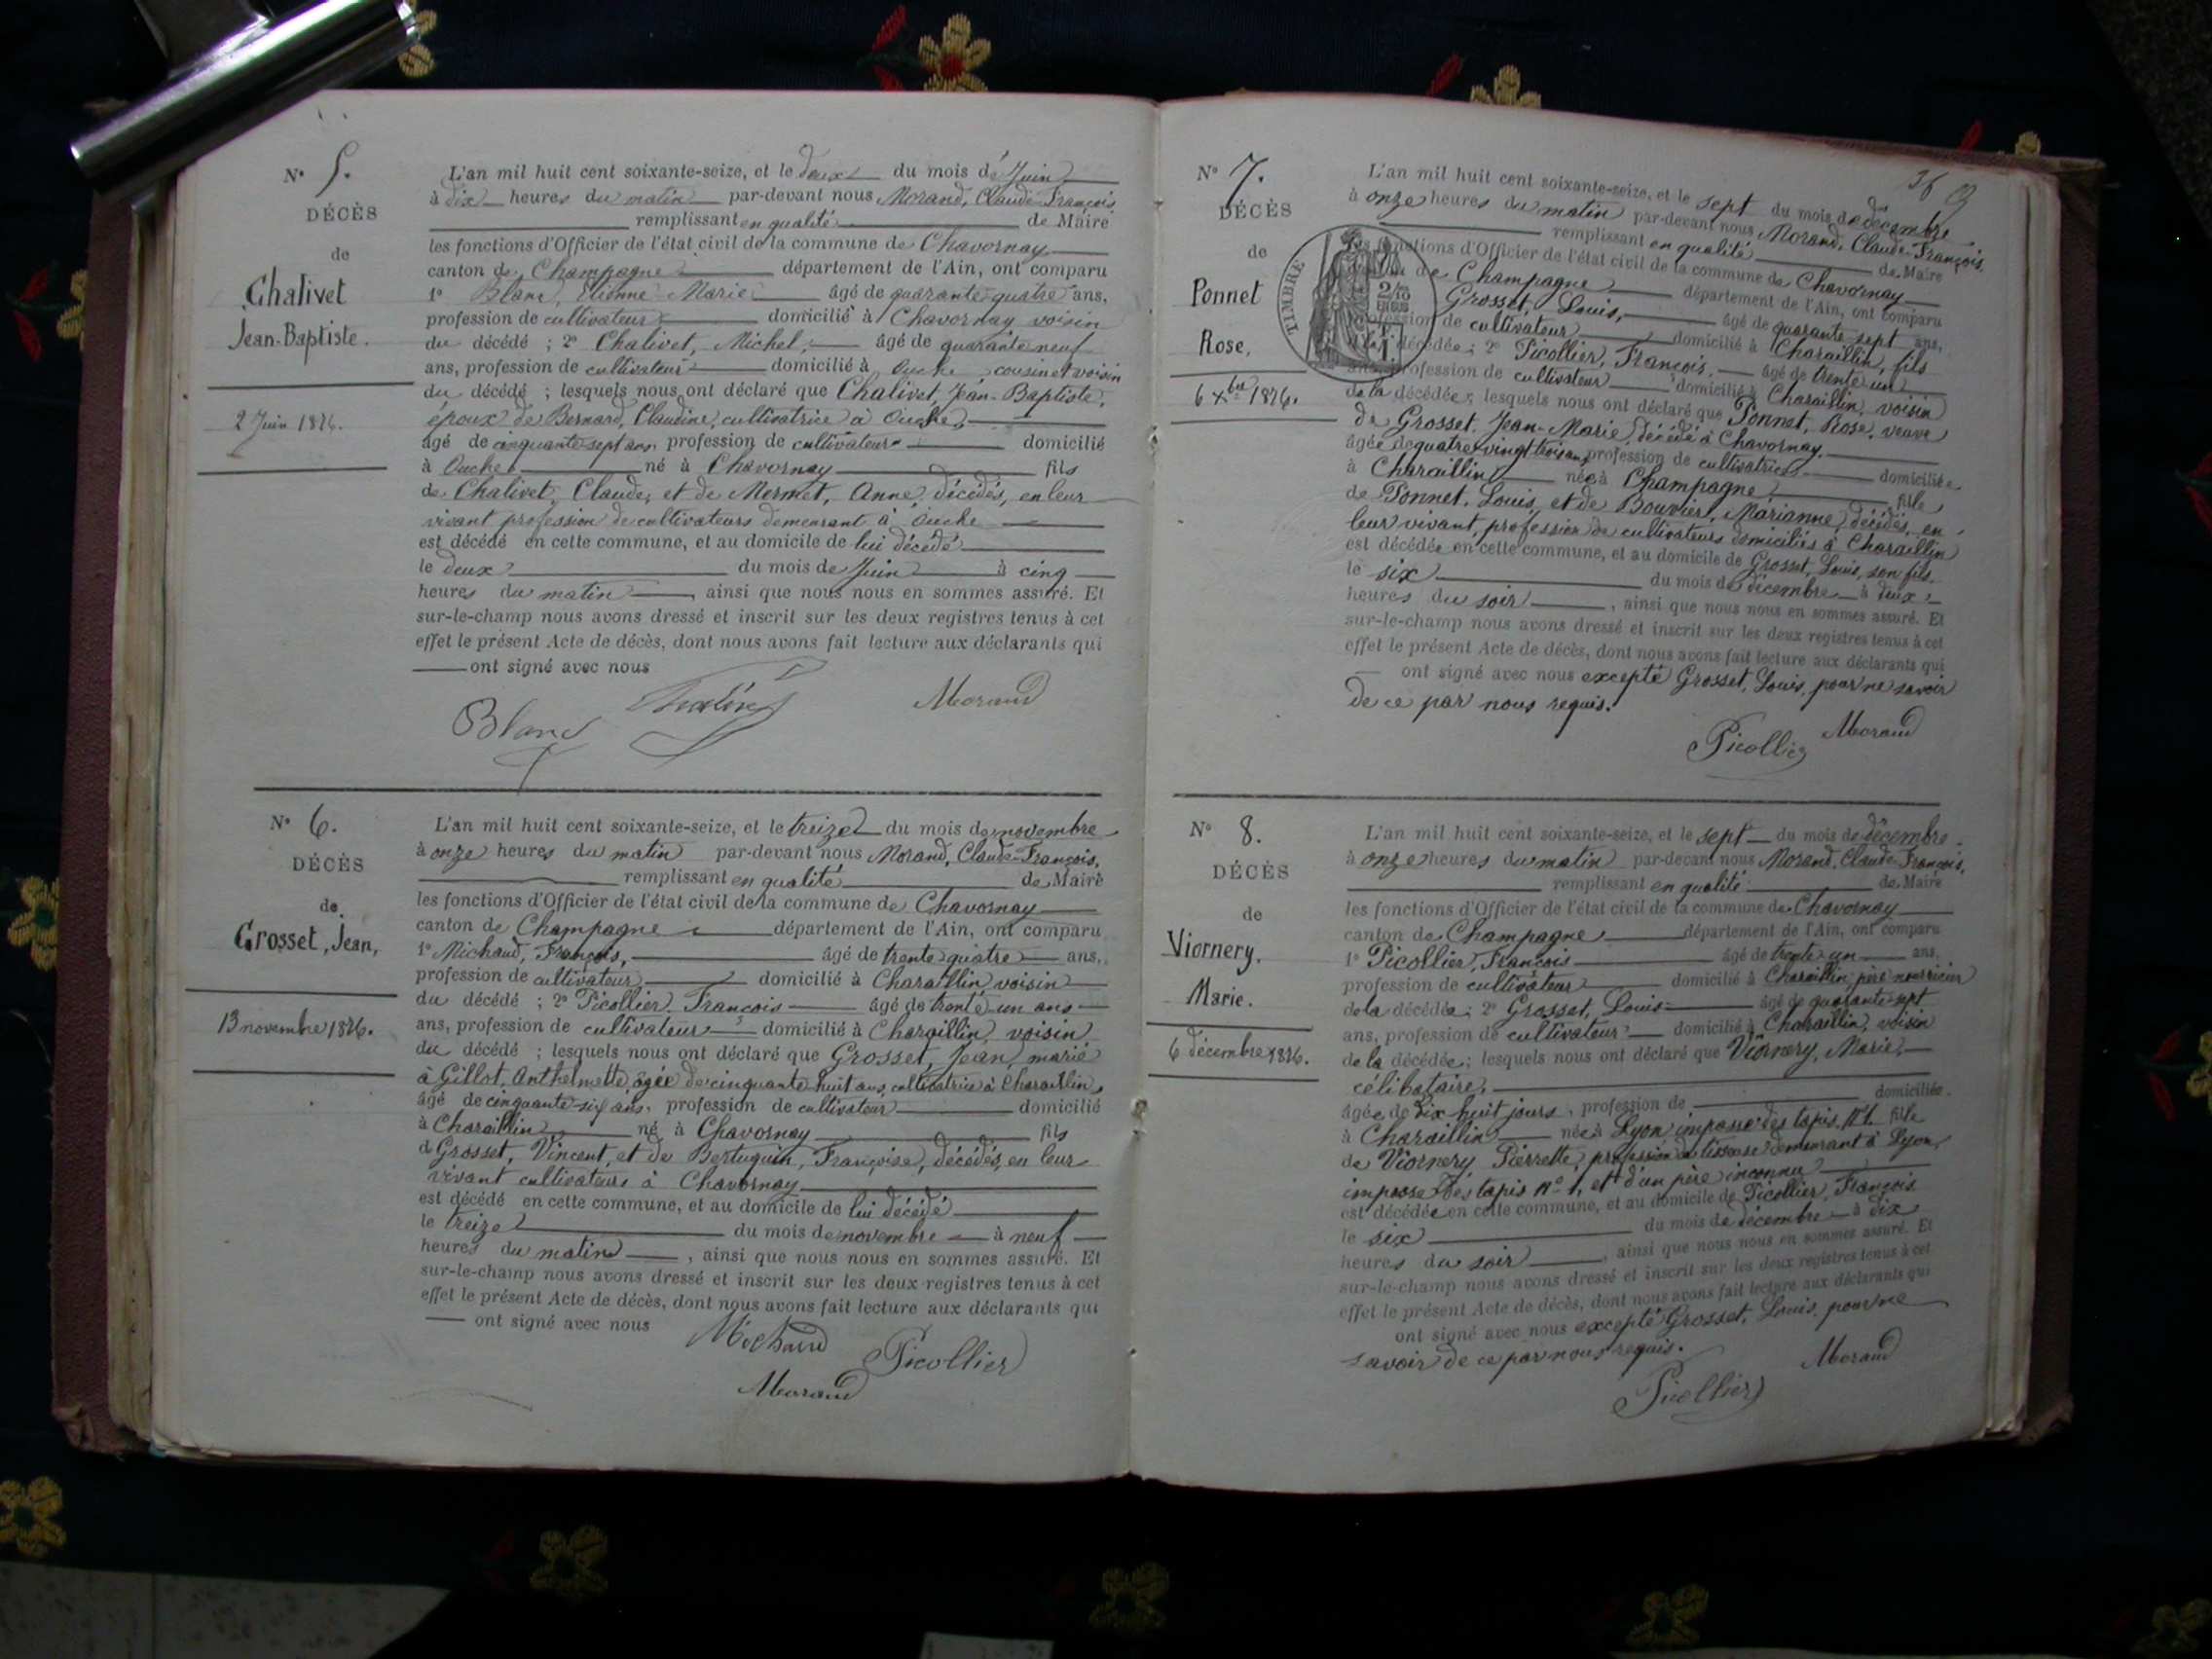 N° 5.
DÉCÈS
de
Chalivet
Jean-Baptiste.
2 Juin 1876.
L'an mil huit cent soixante-seize, et le deux du mois de Juin
à dix heures du matin par-devant nous Morand, Claude-François
remplissant en qualité de Maire
les fonctions d'Officier de l'état civil de la commune de Chavornay
canton de Champagne département de l'Ain, ont comparu
1° Blanc, Etienne Marie âgé de quarante quatre ans,
profession de cultivateur domicilié à Chavornay voisin
du décédé ; 2° Chalivet, Michel, âgé de quarante neuf
ans, profession de cultivateur domicilié à Ouche cousin et voisin
du décédé ; lesquels nous ont déclaré que Chalivet, Jean-Baptiste,
époux de Bernard, Claudine, cultivatrice à Ouche,
âgé de cinquante-sept ans, profession de cultivateur domicilié
à Ouche né à Chavornay fils
de Chalivet, Claude, et de Mermet, Anne, décédés, en leur
vivant profession de cultivateurs demeurant à Ouche
est décédé en cette commune, et au domicile de lui décédé
le deux du mois de Juin à cinq
heures du matin, ainsi que nous nous en sommes assuré. Et
sur-le-champ nous avons dressé et inscrit sur les deux registres tenus à cet
effet le présent Acte de décès, dont nous avons fait lecture aux déclarants qui
ont signé avec nous
Blanc Chalivet Morand
N° 6.
DÉCÈS
de
Grosset, Jean,
13 novembre 1876.
L'an mil huit cent soixante-seize, et le treize du mois de novembre
à onze heures du matin par-devant nous Morand, Claude-François,
remplissant en qualité de Maire
les fonctions d'Officier de l'état civil de la commune de Chavornay
canton de Champagne département de l'Ain, ont comparu
1° Michaud, François, âgé de trente quatre ans,
profession de cultivateur domicilié à Charaillin voisin
du décédé ; 2° Picollier, François âgé de trente-un ans
ans, profession de cultivateur domicilié à Charaillin, voisin
du décédé ; lesquels nous ont déclaré que Grosset, Jean, marié
à Gillot, Anthelmette, âgée de cinquante huit ans, cultivatrice à Charaillin,
âgé de cinquante-six ans, profession de cultivateur domicilié
à Charaillin né à Chavornay fils
d Grosset, Vincent, et de Bertuquin, Françoise, décédés, en leur
vivant cultivateurs à Chavornay
est décédé en cette commune, et au domicile de lui décédé
le treize du mois de novembre à neuf
heures du matin, ainsi que nous nous en sommes assuré. Et
sur-le-champ nous avons dressé et inscrit sur les deux registres tenus à cet
effet le présent Acte de décès, dont nous avons fait lecture aux déclarants qui
ont signé avec nous
Michaud Picollier
Morand
36
N° 7.
DÉCÈS
de
Ponnet
Rose,
6 Xbre 1876.
TIMBRE
2/10
L'an mil huit cent soixante-seize, et le sept du mois de décembre
à onze heures du matin par-devant nous Morand, Claude-François,
remplissant en qualité de Maire
les fonctions d'Officier de l'état civil de la commune de Chavornay
de Champagne département de l'Ain, ont comparu
Grosset, Louis, âgé de quarante sept ans,
profession de cultivateur domicilié à Charaillin, fils
décédée ; 2° Picollier, François, âgé de trente un
ans, profession de cultivateur domicilié à Charaillin, voisin
de la décédée ; lesquels nous ont déclaré que Ponnet, Rose, veuve
de Grosset, Jean-Marie, décédé à Chavornay,
âgée de quatre vingt trois ans, profession de cultivatrice domiciliée
à Charaillin née à Champagne fille
de Ponnet, Louis, et de Bouvier, Marianne, décédés, en
leur vivant, profession de cultivateurs domiciliés à Charaillin
est décédée en cette commune, et au domicile de Grosset, Louis, son fils
le six du mois de décembre à deux
heures du soir, ainsi que nous nous en sommes assuré. Et
sur-le-champ nous avons dressé et inscrit sur les deux registres tenus à cet
effet le présent Acte de décès, dont nous avons fait lecture aux déclarants qui
ont signé avec nous excepté Grosset, Louis, pour ne savoir
de ce par nous requis.
Picollier Morand
N° 8.
DÉCÈS
de
Viornery.
Marie.
6 décembre 1876.
L'an mil huit cent soixante-seize, et le sept du mois de décembre
à onze heures du matin par-devant nous Morand, Claude-François,
remplissant en qualité de Maire
les fonctions d'Officier de l'état civil de la commune de Chavornay
canton de Champagne département de l'Ain, ont comparu
1° Picollier, François âgé de trente un ans,
profession de cultivateur domicilié à Charaillin, père nourricier
de la décédée ; 2° Grosset, Louis âgé de quarante-sept
ans, profession de cultivateur domicilié à Charaillin, voisin
de la décédée ; lesquels nous ont déclaré que Viornery, Marie,
célibataire,
âgée de dix huit jours, profession de domiciliée
à Charaillin née à Lyon impasse des tapis, N° 1. fille
de Viornery, Pierrette, profession de tisseuse demeurant à Lyon,
impasse des tapis N° 1, et d'un père inconnu
est décédée en cette commune, et au domicile de Picollier, François
le six du mois de décembre à dix
heures du soir, ainsi que nous nous en sommes assuré. Et
sur-le-champ nous avons dressé et inscrit sur les deux registres tenus à cet
effet le présent Acte de décès, dont nous avons fait lecture aux déclarants qui
ont signé avec nous excepté Grosset, Louis, pour ne
savoir de ce par nous requis.
Picollier Morand